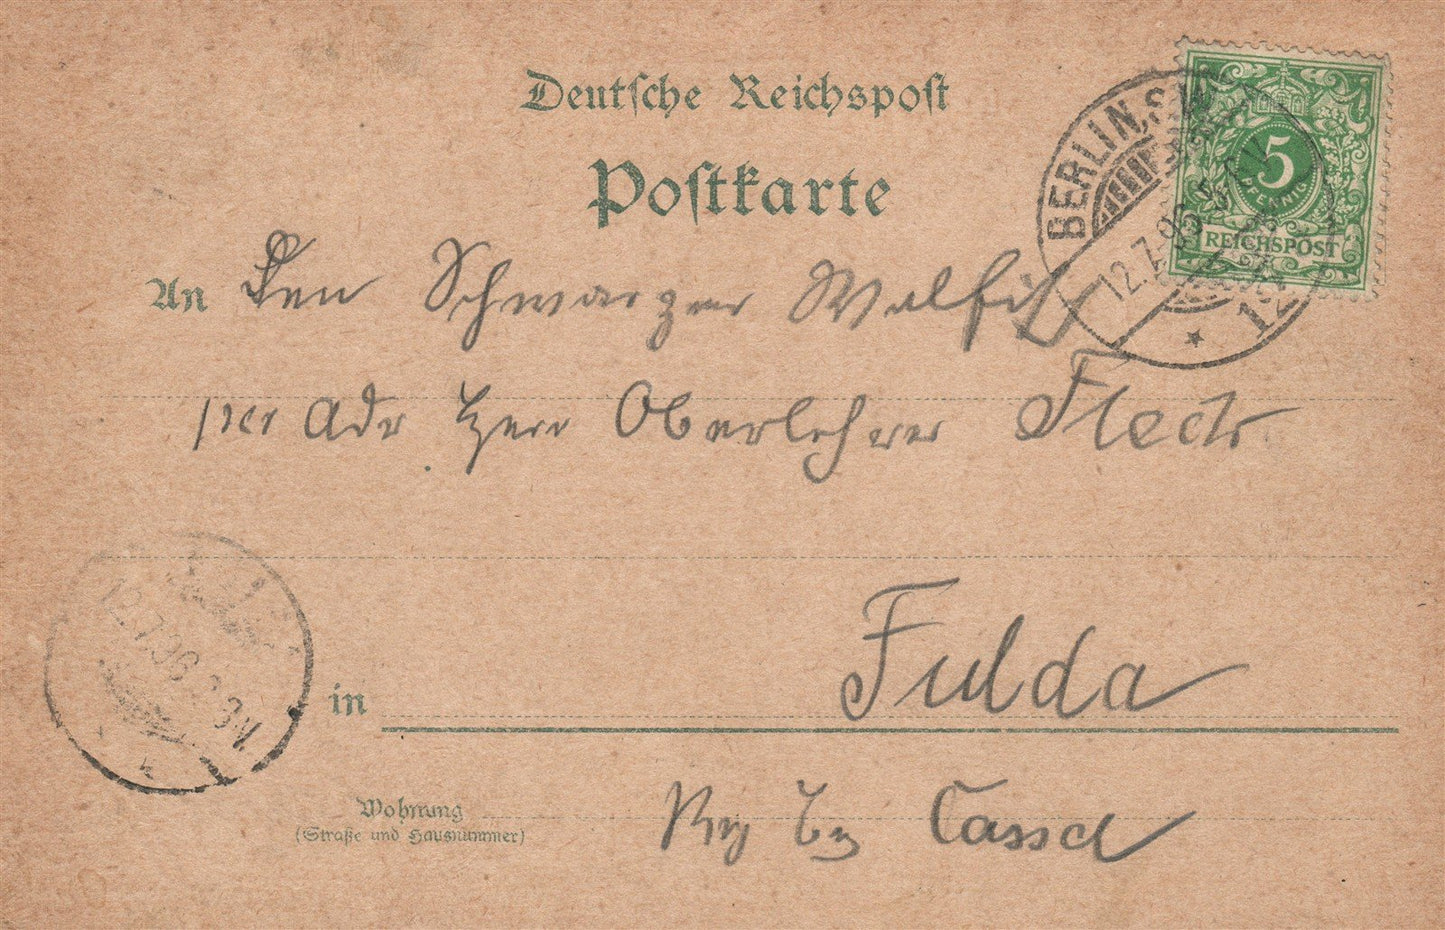 Deutsche Reichspost
Postkarte
BERLIN, S.W.
12.7.96
12
5
PFENNIG
REICHSPOST
An Den Schwarzen Walfisch
per Adr Herr Oberlehrer
12.7.96
in Fulda
Wohnung
(Straße und Hausnummer)
Reg Bz Cassel